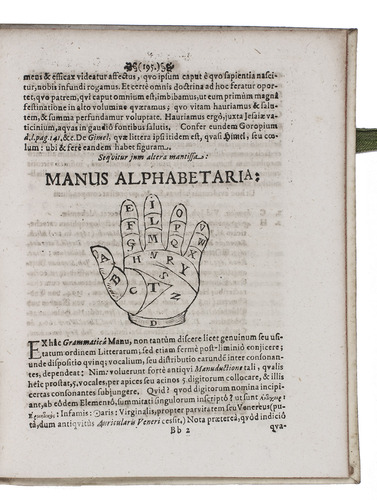 (195.)
meus & efficax videatur affectus, qvo ipsum caput è qvo sapientia nasci-
tur, nobis infundi rogamus. Et certè omnis doctrina ad hoc feratur oporˈ
tet, qvo patrem, qvi caput omnium est, imbibamus, ut eum primùm magnâ
festinatione in alto volumine qværamus; qvo vitam hauriamus & salu-
tem, & summa perfundamur voluptate. Hauriamus ergò, juxta Jesaiæ va-
ticinium, aqvas in gaudiô fontibus salutis. Confer eundem Goropium
d.l. pag. 141, &c. De Gimel, qvæ littera ipsi itidem est, quasi Himel, seu cœ-
lum: ubi & ferè eandem habet figuram.
Seqvitur jum altera mantissa:
MANUS ALPHABETARIA:
E F G H
I L M N
O P Q R
V W X Y
A B C
S T Z
D
EX hâc Grammaticâ Manu, non tantùm discere licet genuinum seu usi-
tatum ordinem Litterarum, sed etiam fermè post-liminiò conjicere;
unde dispositio qvinq; vocalium, seu distributio earundē inter consonan-
tes, dependeat: Nim: voluerunt fortè antiqvi Manuductione tali, qvalis
hîc prostat, 5. vocales, per apices seu acinos 5. digitorum collocare, & illis
certas consonantes subjungere. Qvid? qvod digitorum nomina incipi-
ant, ab eôdem Elementô, summitati singulorum inscriptô? ut sunt
Infamis: Oaris: Virginalis, propter parvitatem seu Venereus (pu-
tà, dum antiqvitùs Auricularis Veneri cessit,) Nota prætereà, qvòd indiciô
Bb 2
qva-